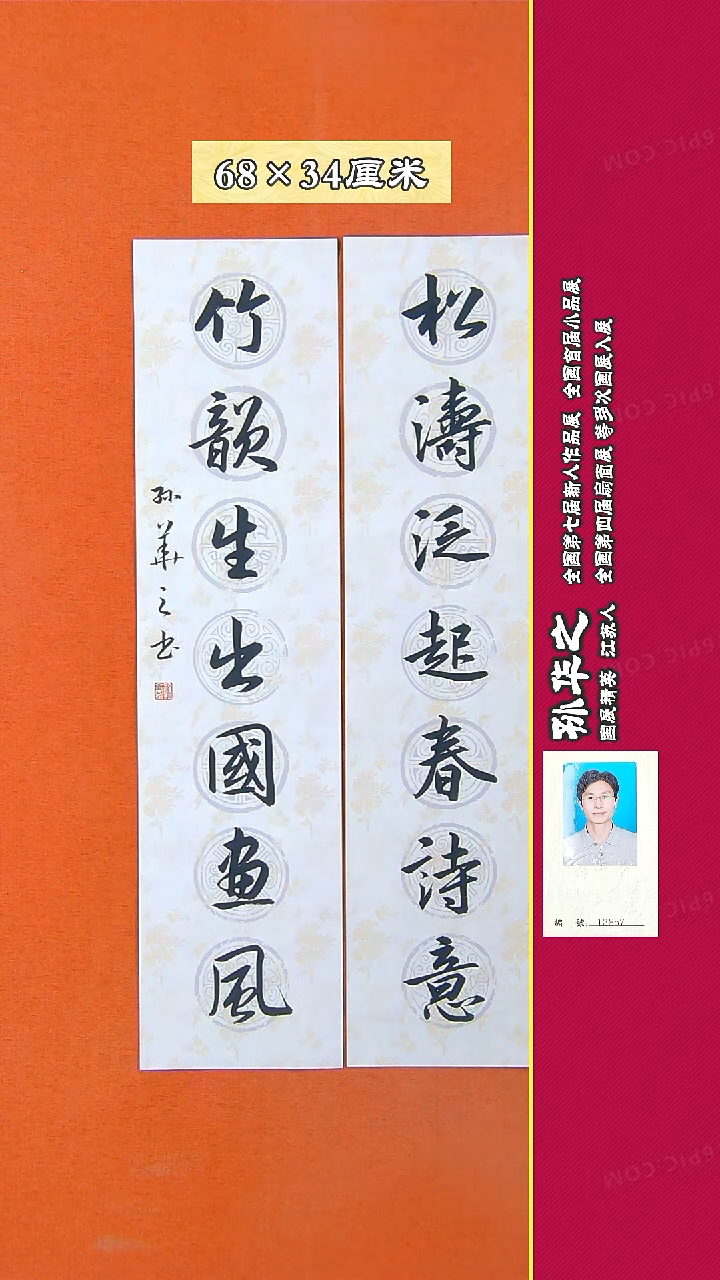 68×34厘米
松濤泛起春詩意
竹韻生出國畫風
孫華之书
孙华之
国展精英 江苏人
全国第七届新人作品展 全国首届小品展
全国第四届扇面展 等多次国展入展
編 號: 12857
6PIC.COM
6PIC.COM
6PIC.COM
6PIC.COM
6PIC.COM